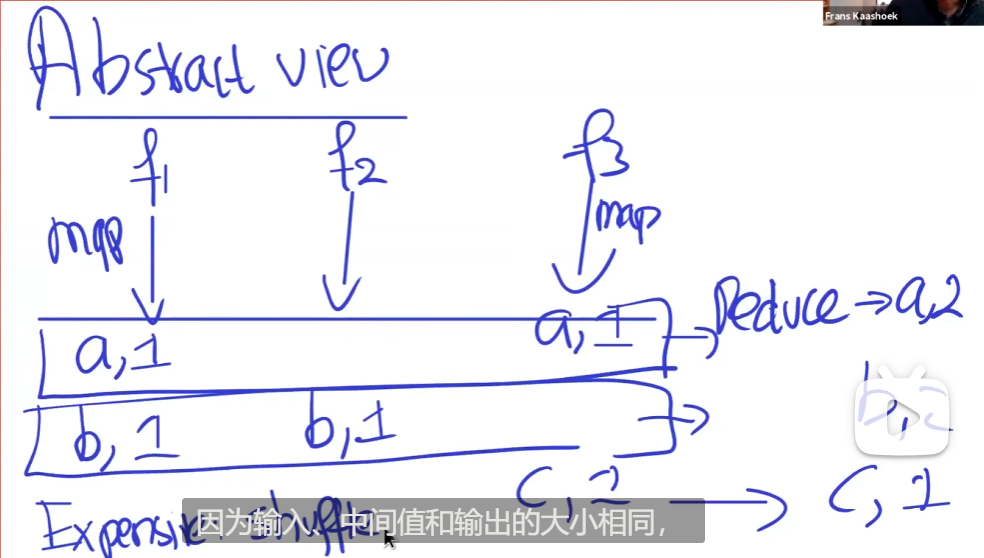 Frans Kaashoek
Abstract view
f1 f2 f3
map map
a,1 a,1 Reduce → a,2
b,1 b,1 b,2
c,1 c,1
Expensive shuffle
因为输入、中间值和输出的大小相同，